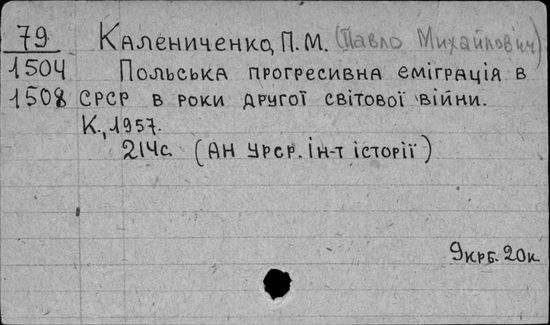 79 Калениченко, П.М. (Павло Михайлович)
1504 Польська прогресивна еміграція в
1508 СРСР в роки другої світової війни.
К., 1957.
214с. (АН УРСР. ін-т історії)
9крб. 20к